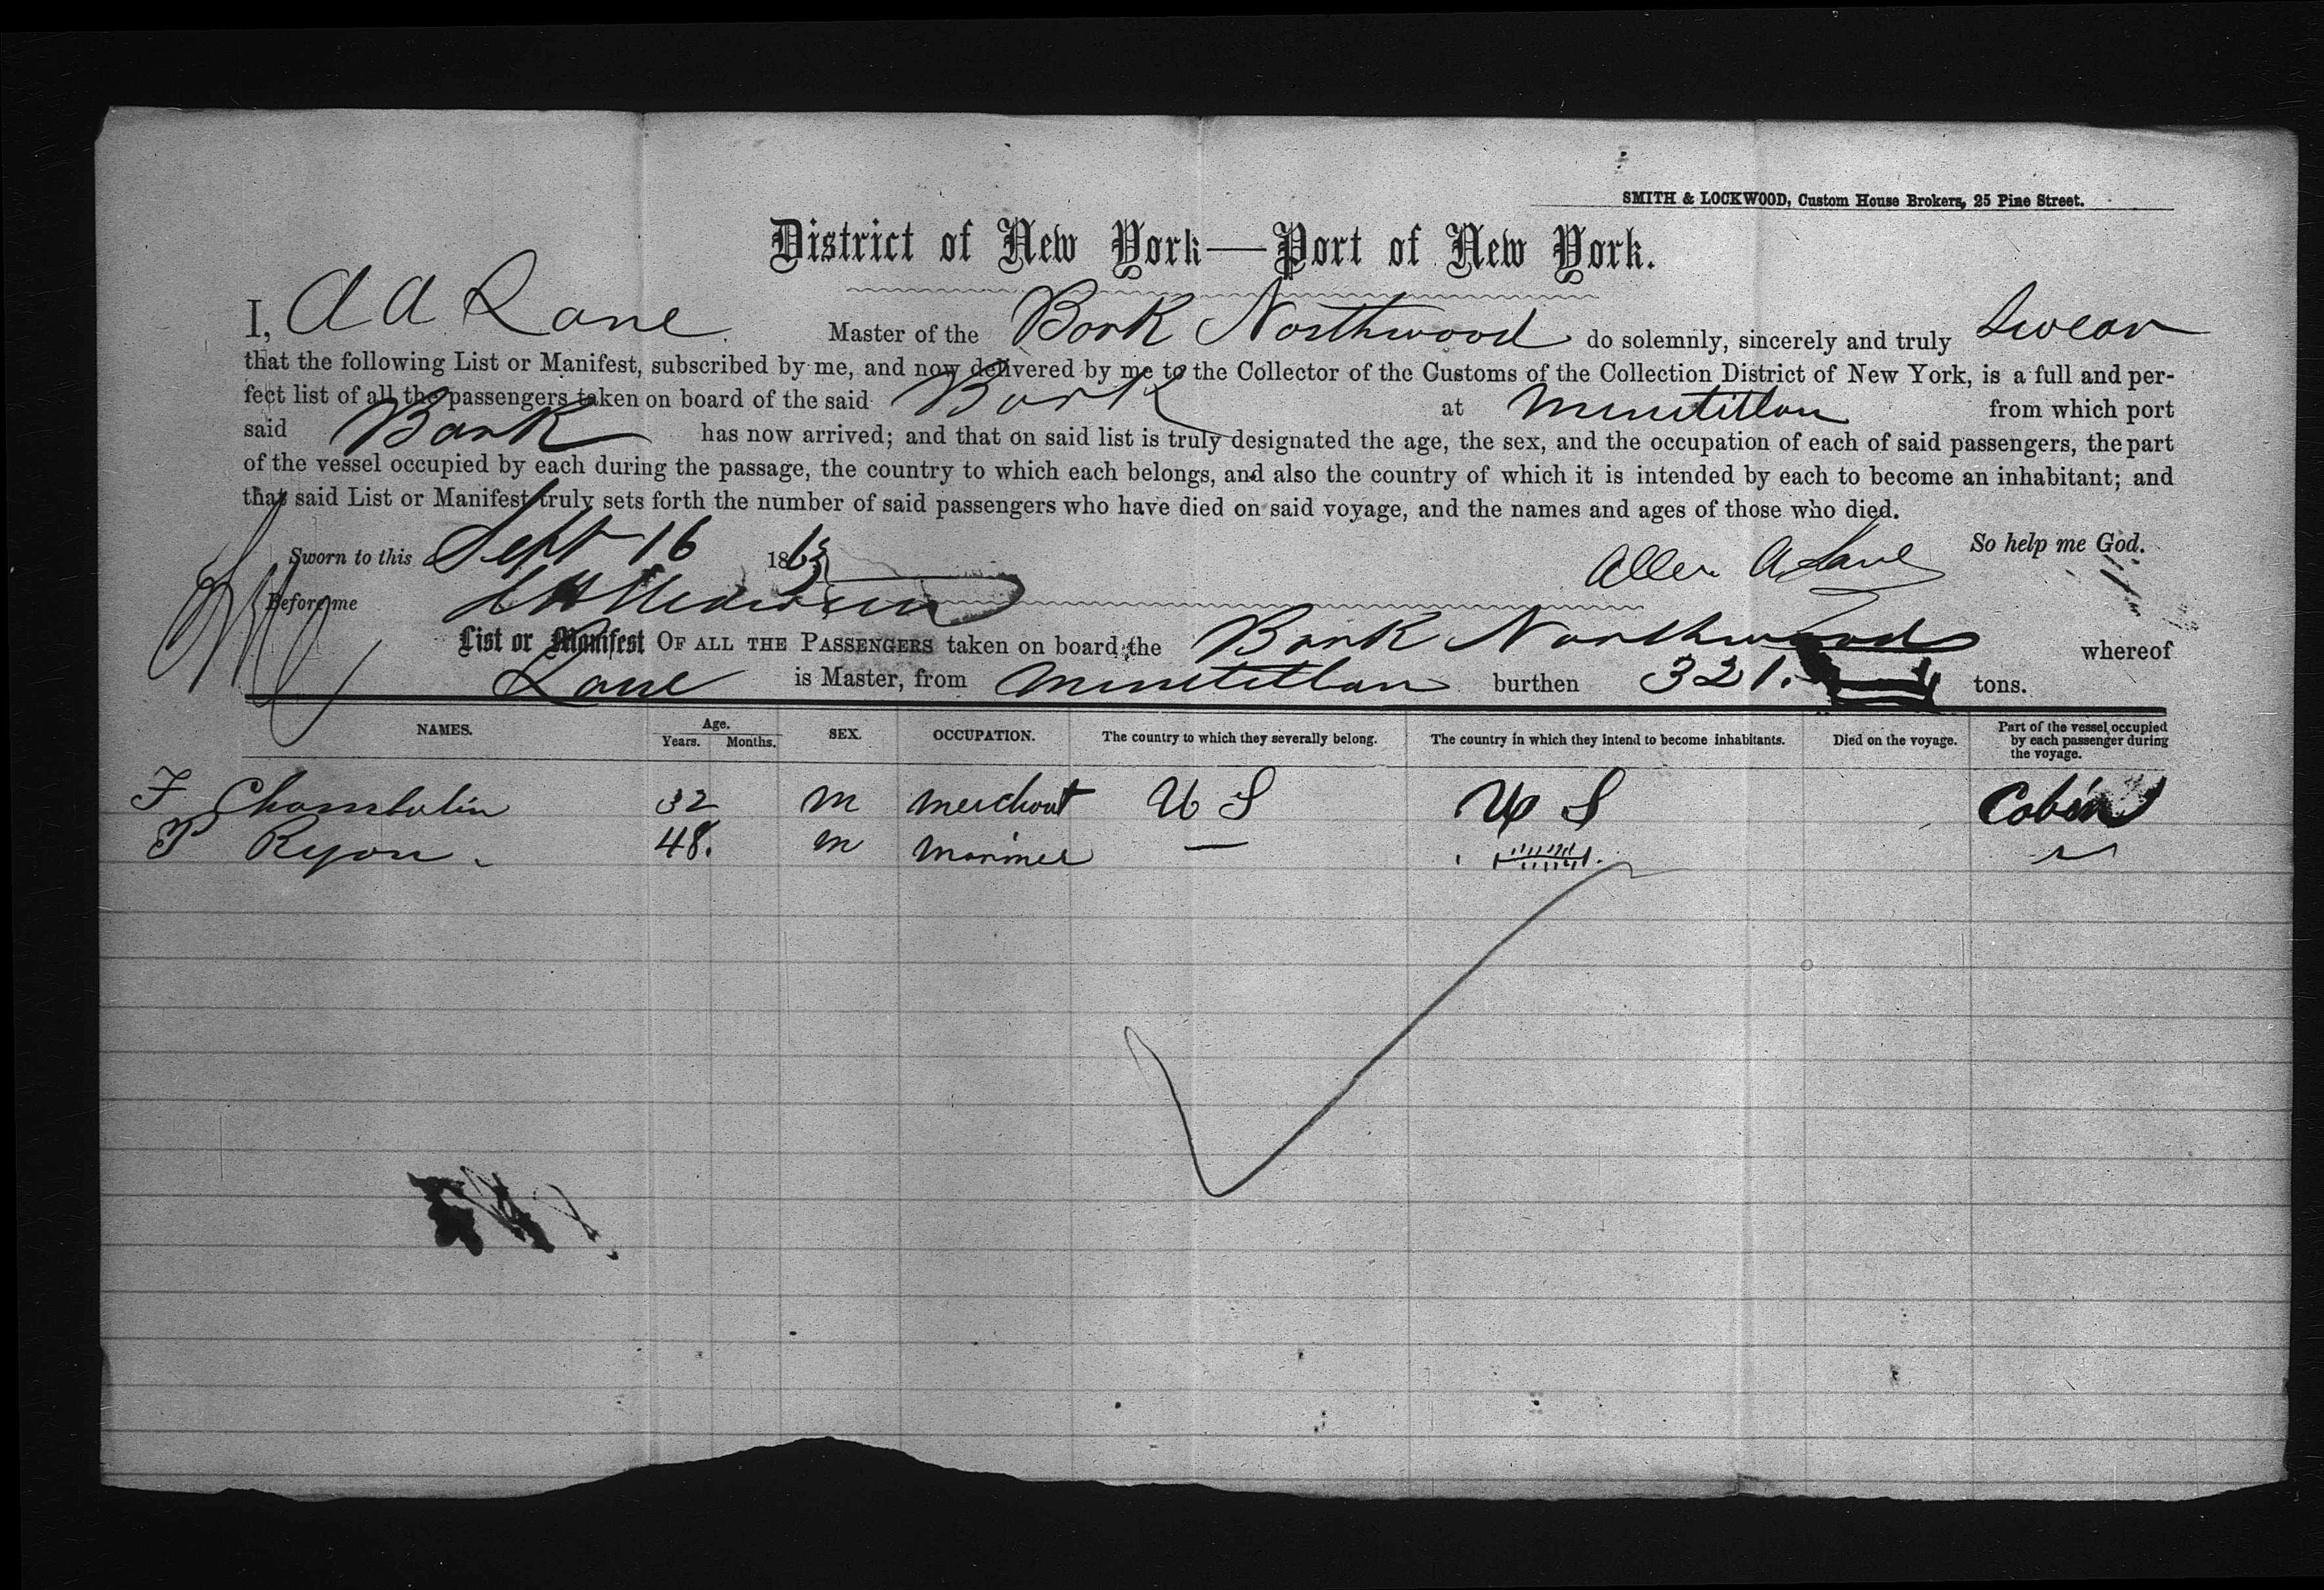 SMITH & LOCKWOOD, Custom House Brokers, 25 Pine Street.
District of New York—Port of New York.
I, A A Lane Master of the Bark Northwood do solemnly, sincerely and truly Swear
that the following List or Manifest, subscribed by me, and now delivered by me to the Collector of the Customs of the Collection District of New York, is a full and per-
fect list of all the passengers taken on board of the said Bark at Minititlan from which port
said Bark has now arrived; and that on said list is truly designated the age, the sex, and the occupation of each of said passengers, the part
of the vessel occupied by each during the passage, the country to which each belongs, and also the country of which it is intended by each to become an inhabitant; and
that said List or Manifest truly sets forth the number of said passengers who have died on said voyage, and the names and ages of those who died.
So help me God.
Sworn to this Sept 16 1863
Allen A Lane
Before me
List or Manifest OF ALL THE PASSENGERS taken on board the Bark Northwood whereof
Lane is Master, from Minititlan burthen 321. tons.
NAMES. Age. Years. Months. SEX. OCCUPATION. The country to which they severally belong. The country in which they intend to become inhabitants. Died on the voyage. Part of the vessel occupied by each passenger during the voyage.
F Chamberlin 32 M Merchant U S U S Cabin
P Ryan 48. M Mariner —